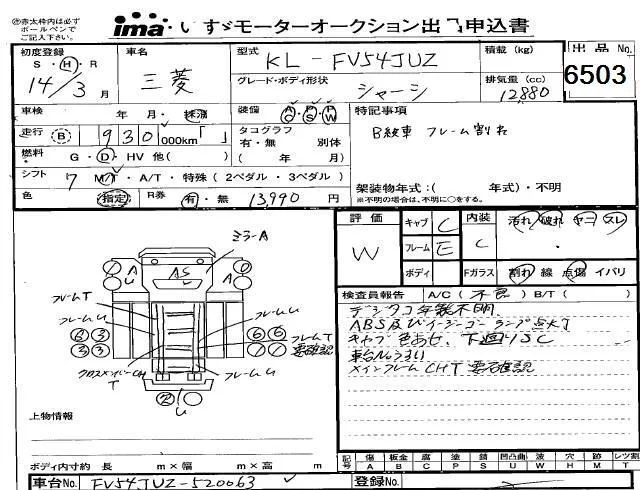 ㊟赤太枠内は必ず
ボールペンで
ご記入下さい。
ima いすゞモーターオークション出品申込書
初度登録
S・H・R
14/3月
車名
三菱
型式
KL-FV54JUZ
積載(kg)
出品No.
6503
グレード・ボディ形状
シャーシ
排気量(cc)
12880
車検 年 月・抹消
装備 AC PS PW
特記事項
B級車 フレーム割れ
走行 B 930,000km「 」
タコグラフ
有・無 別体
( 年 月)
燃料 G・D・HV 他( )
シフト 7 M/T・A/T・特殊(2ペダル・3ペダル)
架装物年式:( 年式)・不明
※不明の場合は、不明に○をする。
色 (指定) R券 有・無 13,990円
評価
W
キャブ C
フレーム E
ボディ
内装 C
Fガラス
汚れ 破れ ヤニ スレ
割れ 線 点傷 イバリ
検査員報告 A/C(不良)B/T( )
デジタコ年数不明.
ABS及びイージーゴーランプ点灯
キャブ色あせ、下廻りSC
車台No.うすい
メインフレームCHT 要確認
ミラーA
A
AS
A
U
フレームT
フレームU
フレームU
フレームT
要確認
クロスメンバーCH
T
フレームU
U
上物情報
ボディ内寸約 長 m×幅 m×高 m
記号 傷 A 板金 B 腐 C 塗 P 錆 S 凹凸曲 U 波 W 穴 H 跡 M レツ割 T
車台No. FV54JUZ-520063
登録No.